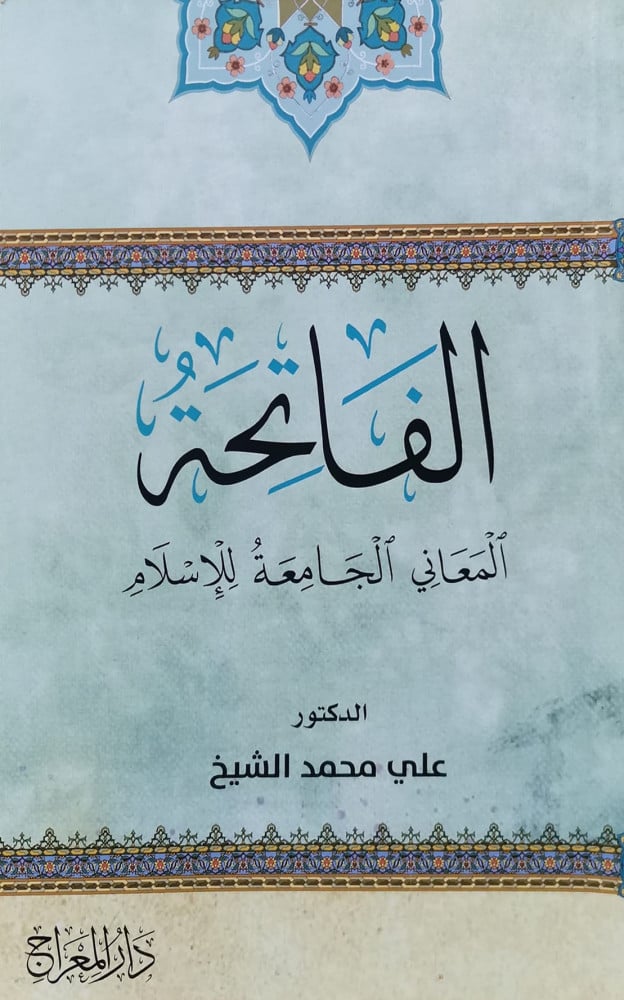 الفَاتِحَةُ
ٱلْمَعَانِي ٱلْجَامِعَةُ لِلْإِسْلَامِ
الدكتور
علي محمد الشيخ
دَارُ المِعْرَاجِ